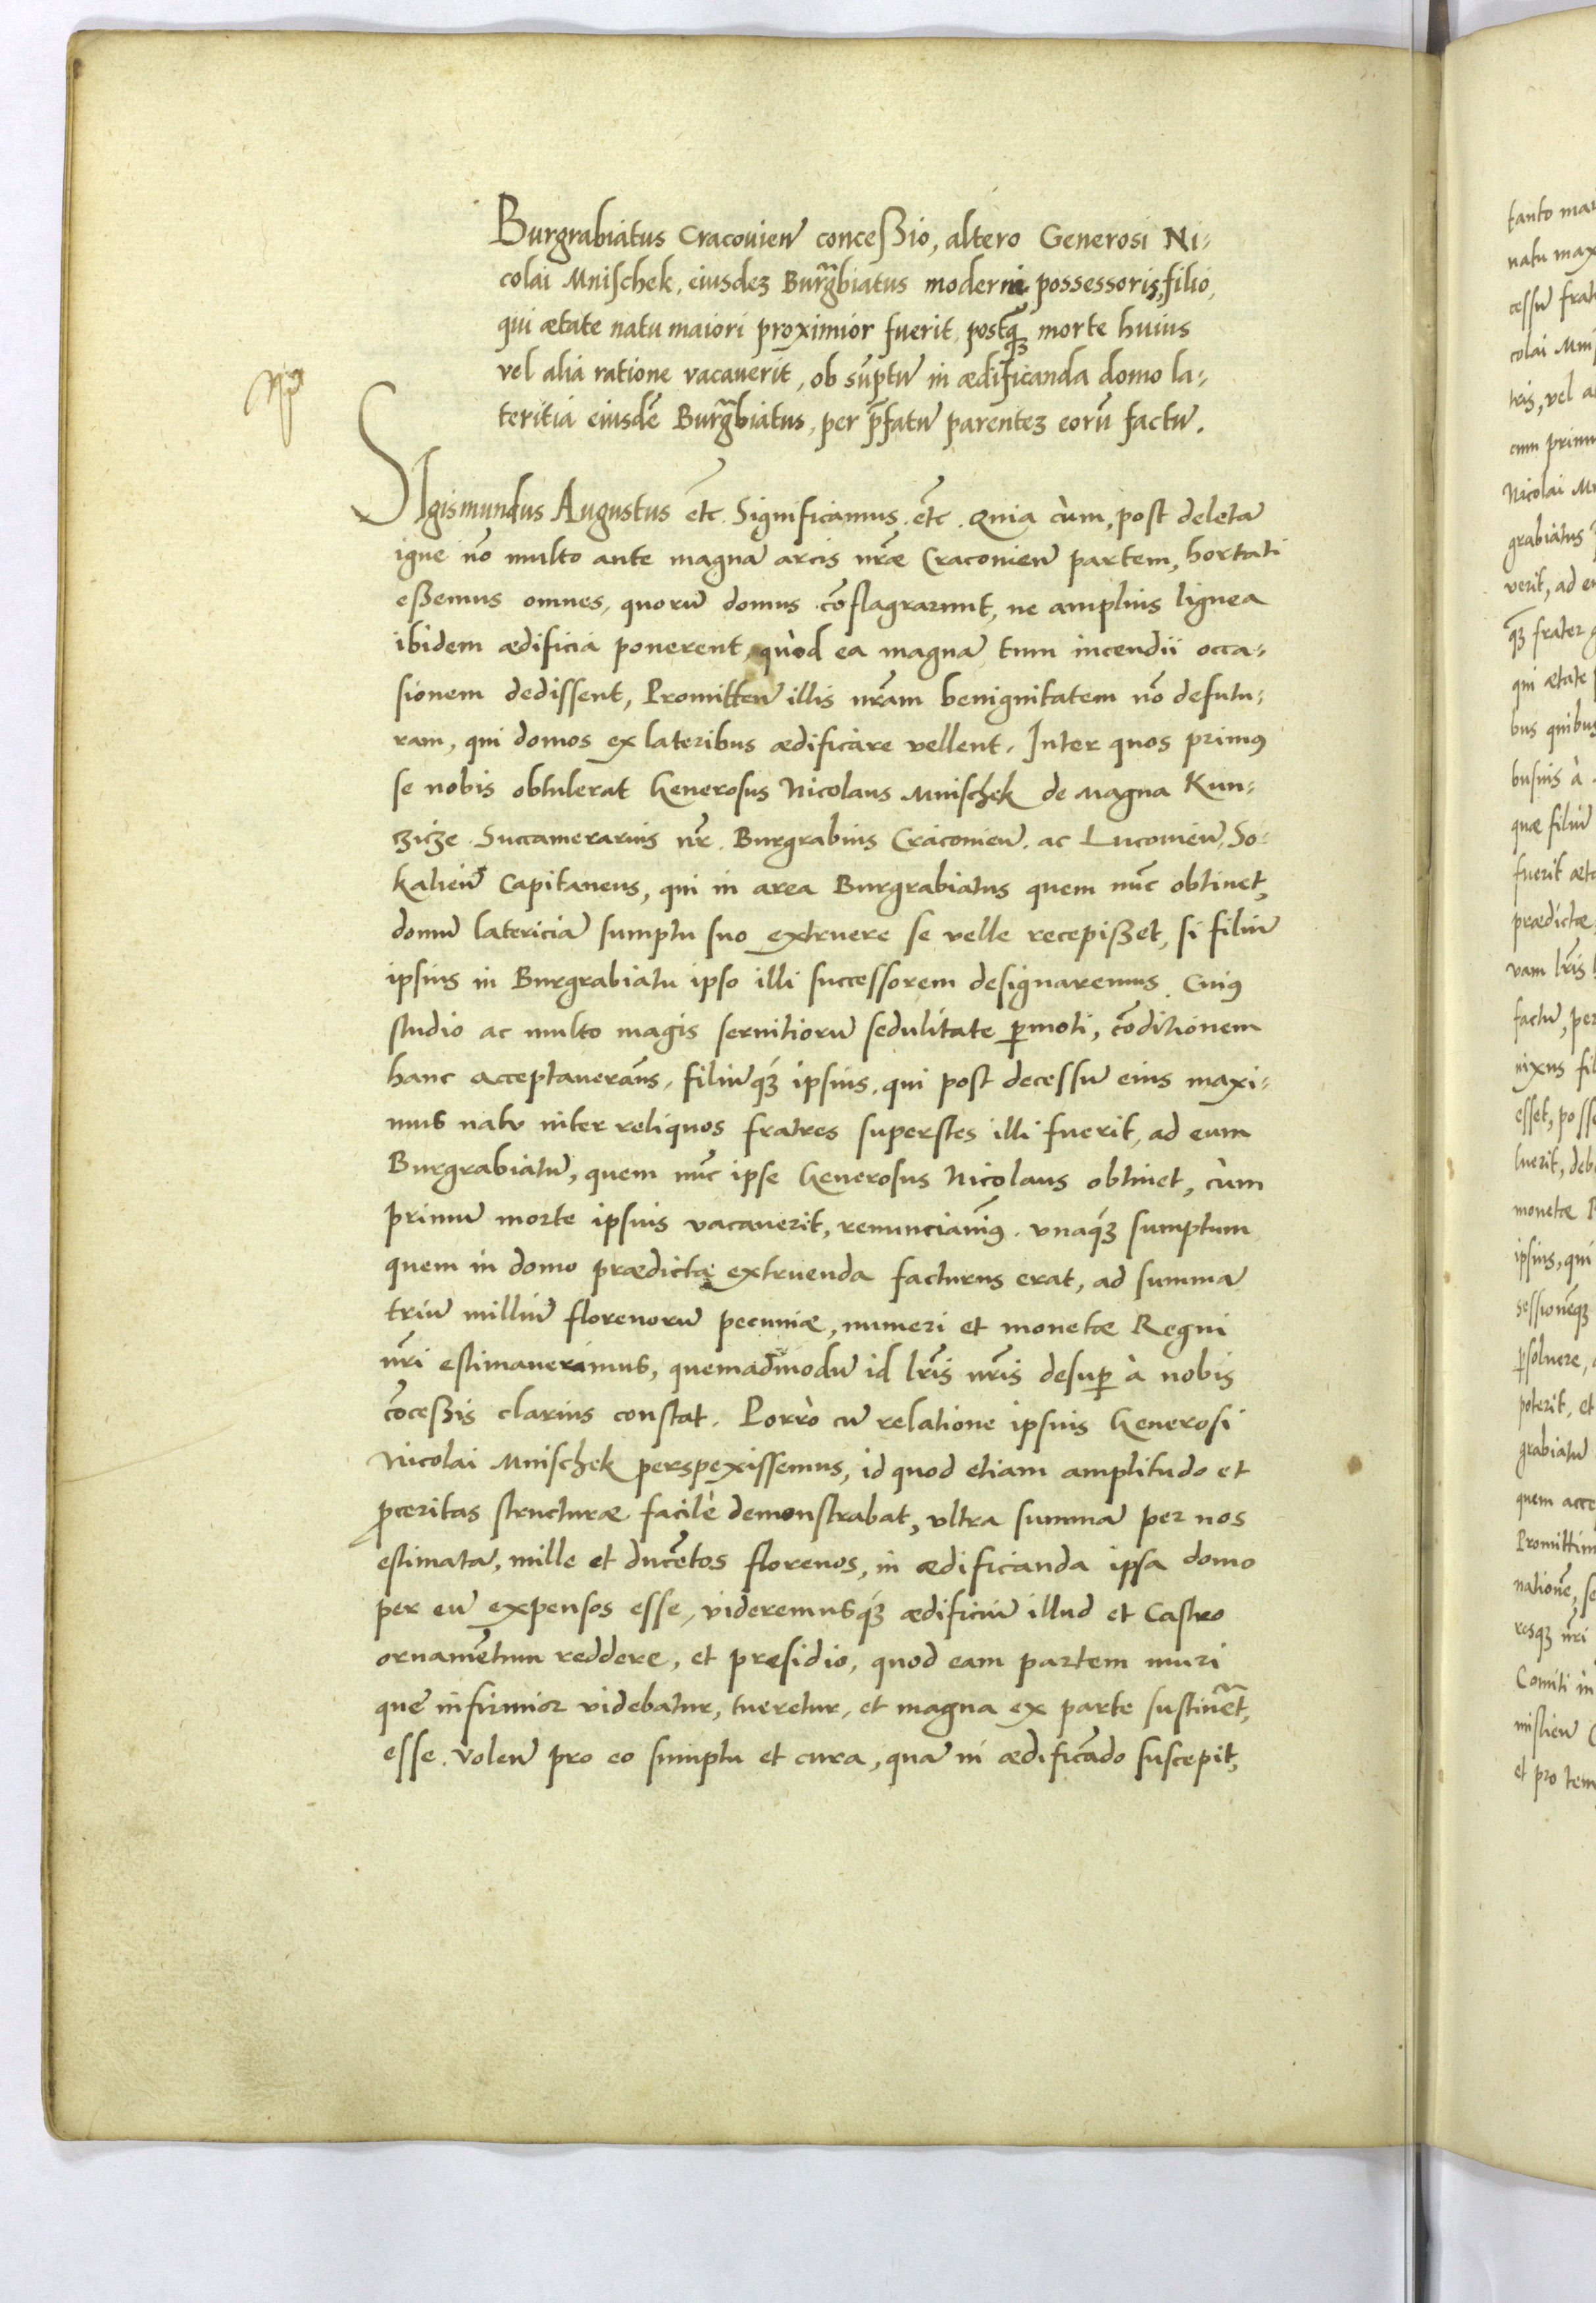 Burgrabiatus Cracovień conceßio, altero Generosi Ni-
colai Mnischek, eiusdeȝ Burg̃biatus moderni possessoris, filio,
qui ætate natu maiori proximior fuerit, postq̃ȝ morte huius
vel alia ratione vacauerit, ob sũptũ in ædificanda domo la-
teritia eiusdẽ Burg̃biatus, per p̃fatũ parenteȝ eorũ factũ.
SIgismundus Augustus etc̃. Significamus. etc̃. Quia cùm, post deletã
igne nõ multo ante magnã arcis nr̃æ Cracouień partem, hortati
eßemus omnes, quorũ domus cõflagrarunt, ne amplius lignea
ibidem ædificia ponerent, quòd ea magnã tum incendii occa-
sionem dedissent, Promitteñ illis nr̃am benignitatem nõ defutu-
ram, qui domos ex lateribus ædificare vellent. Inter quos primꝰ
se nobis obtulerat Generosus Nicolaus Mnischek de Magna Kun-
czicze Succamerarius nr̃. Burgrabius Cracouień. ac Lucouień, So-
kalień Capitaneus, qui in area Burgrabiatus quem nũc obtinet,
domũ latericiã sumptu suo extruere se velle recepißet, si filiũ
ipsius in Burgrabiatu ipso illi successorem designaremus. Cuiꝰ
studio ac multo magis seruitiorũ sedulitate ꝑmoti, cõditionem
hanc acceptauerãs, filiũqȝ ipsius, qui post decessũ eius maxi-
mus natu inter reliquos fratres superstes illi fuerit, ad eum
Burgrabiatũ, quem nũc ipse Generosus Nicolaus obtinet, cùm
primũ morte ipsius vacauerit, renunciauim̃ꝰ. vnaqȝ sumptum
quem in domo prædicta extruenda facturus erat, ad summã
triũ milliũ florenorũ pecuniæ, numeri et monetæ Regni
nr̃i estimauerimus, quemadmodũ id lr̃is nr̃is desuꝑ à nobis
cõceßis clarius constat. Porrò cũ relatione ipsius Generosi
Nicolai Mnischek perspexissemus, id quod etiam amplitudo et
ꝓceritas structuræ facilè demonstrabat, vltra summã per nos
estimatã, mille et ducẽtos florenos, in ædificanda ipsa domo
per eũ expensos esse, videremusqȝ ædificiũ illud et Castro
ornamẽtum reddere, et præsidio, quod eam partem muri
que infirmior videbatur, tueretur, et magna ex parte sustinet̃,
esse. Voleñ pro eo sumptu et cura, quã in ædificãdo suscepit,
tanto mai
natu max
cessũ frat
colai Mni
tris, vel a
cum primũ
Nicolai Mn
grabiatus
verit, ad eu
qȝ frater g
qui ætate
bus quibus
busuis à
quæ filiũ
fuerit æta
prædictæ
vam lr̃is
factũ, per
nixus fil
esset, posse
luerit, deb
monetæ R
ipsius, qui
sessionẽqȝ
ꝑsoluere,
poterit, et
grabiatũ
quem acce
Promittim
nationẽ, se
resqȝ nr̃i
Comiti in
mislień C
et pro tem